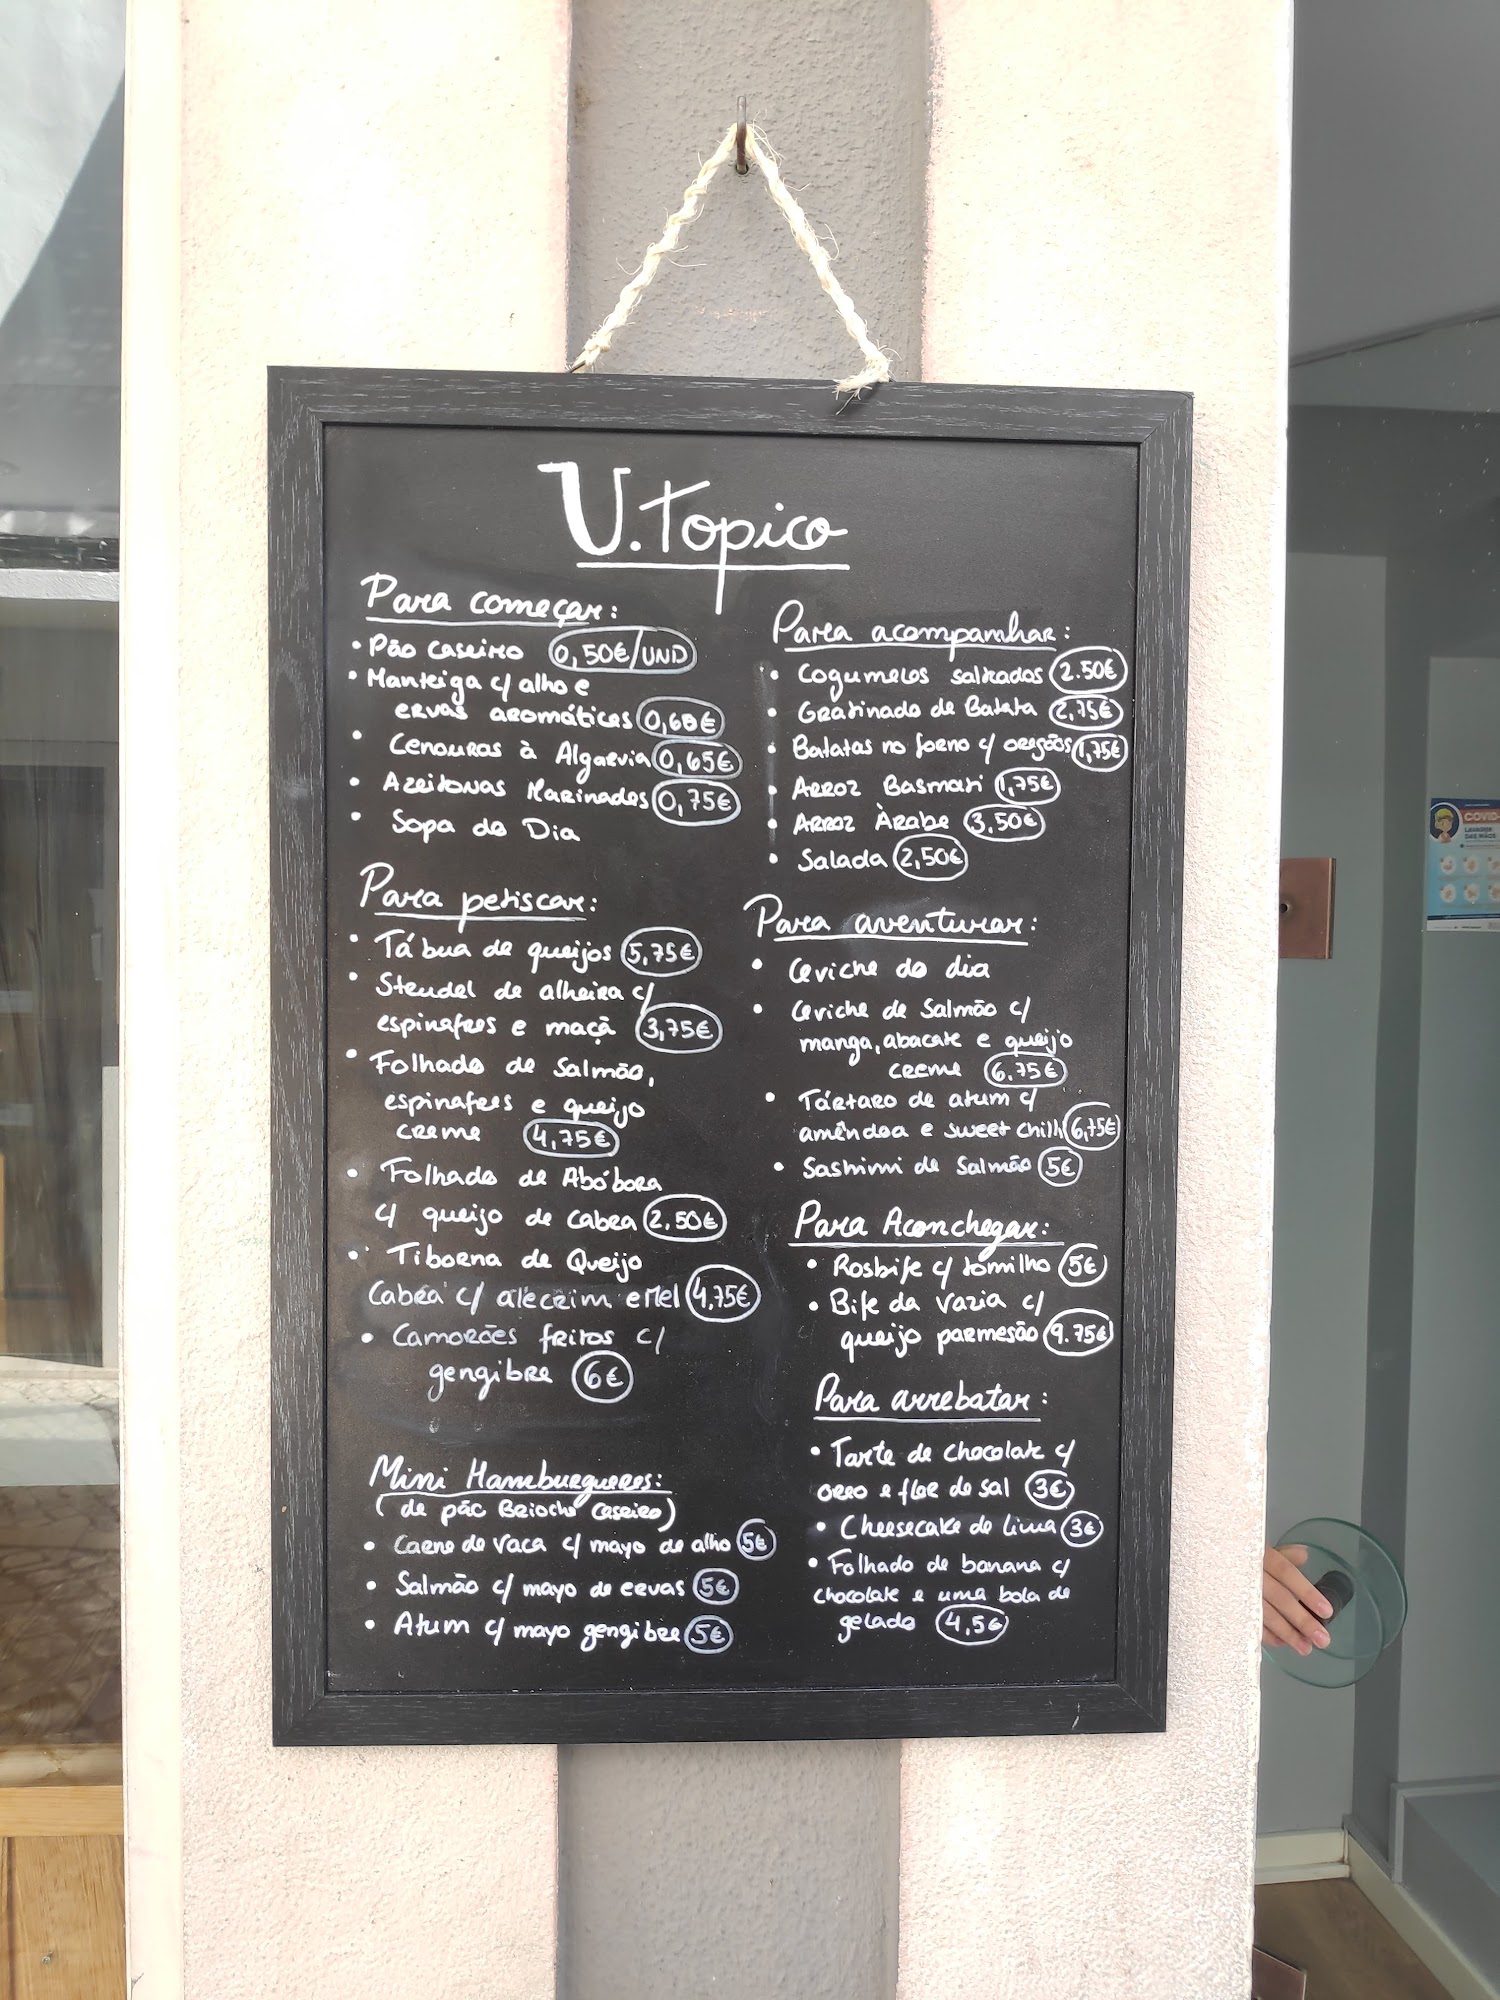 U.Topico
Para começar:
• Pão caseiro 0,50€/UND
• Manteiga c/ alho e
ervas aromáticas 0,60€
• Cenouras à Algarvia 0,65€
• Azeitonas Marinadas 0,75€
• Sopa do Dia
Para petiscar:
• Tábua de queijos 5,75€
• Steudel de alheira c/
espinafres e maçã 3,75€
• Folhado de Salmão,
espinafres e queijo
creme 4,75€
• Folhado de Abóbora
c/ queijo de cabra 2,50€
• Tiborna de Queijo
Cabra c/ alecrim e Mel 4,75€
• Camorões fritos c/
gengibre 6€
Mini Hamburgueres:
(de pão Brioche Caseiro)
• Carne de vaca c/ mayo de alho 5€
• Salmão c/ mayo de ervas 5€
• Atum c/ mayo gengibre 5€
Para acompanhar:
• Cogumelos salteados 2.50€
• Gratinado de Batata 2,75€
• Batatas no forno c/ oregãos 1,75€
• Arroz Basmati 1,75€
• Arroz Àrabe 3,50€
• Salada 2,50€
Para aventurar:
• Ceviche do dia
• Ceviche de Salmão c/
manga, abacate e queijo
creme 6.75€
• Tártaro de atum c/
amêndoa e sweet chilli 6,75€
• Sashimi de Salmão 5€
Para Aconchegar:
• Rosbife c/ tomilho 5€
• Bife da vazia c/
queijo parmesão 9.75€
Para arrebatar:
• Tarte de chocolate c/
oreo e flor de sal 3€
• Cheesecake de Lima 3€
• Folhado de banana c/
chocolate e uma bola de
gelado 4,5€
COVID-
LAVAGEM
DAS MÃOS